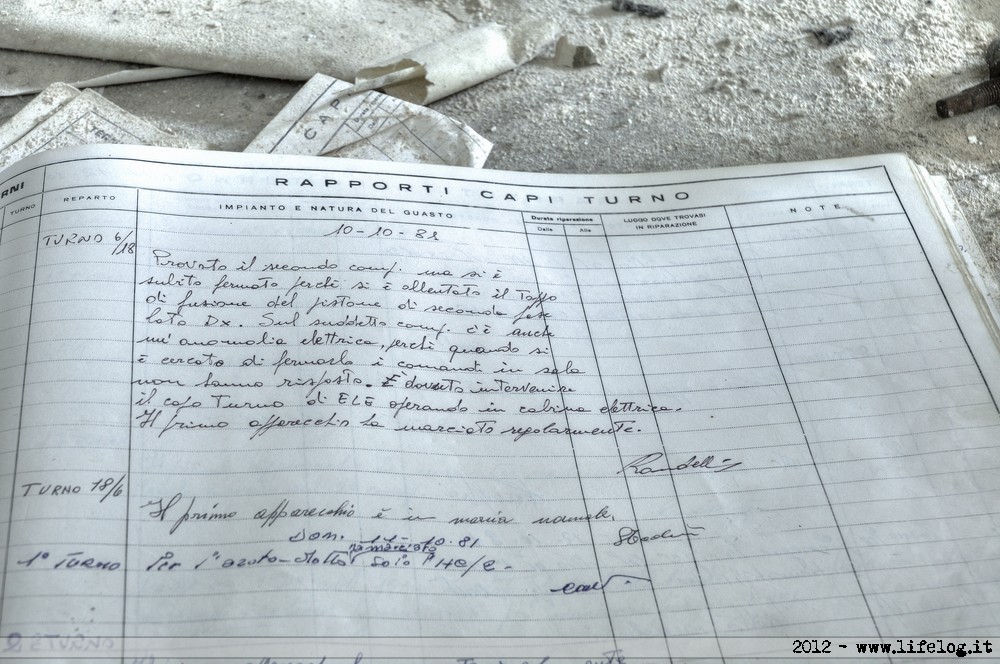 CAP
RNI
RAPPORTI CAPI TURNO
TURNO
REPARTO
IMPIANTO E NATURA DEL GUASTO
Durata riparazione
Dalle
Alle
LUOGO DOVE TROVASI
IN RIPARAZIONE
NOTE
10-10-81
TURNO 6/18
Provato il secondo comp. ma si è
subito fermato perché si è allentato il tappo
di fusione del pistone di seconda fase
lato Dx. Sul suddetto comp. c'è anche
un'anomalia elettrica, perché quando si
è cercato di fermarlo i comandi in sala
non hanno risposto. È dovuto intervenire
il capo Turno di ELE operando in cabina elettrica.
Il primo apparecchio ha marciato regolarmente.
Randelli
TURNO 18/6
Il primo apparecchio è in marcia normale.
Dom. 11-10-81
1° TURNO Per l'azoto ha marciato solo
2 TURNO
2012 - www.lifelog.it